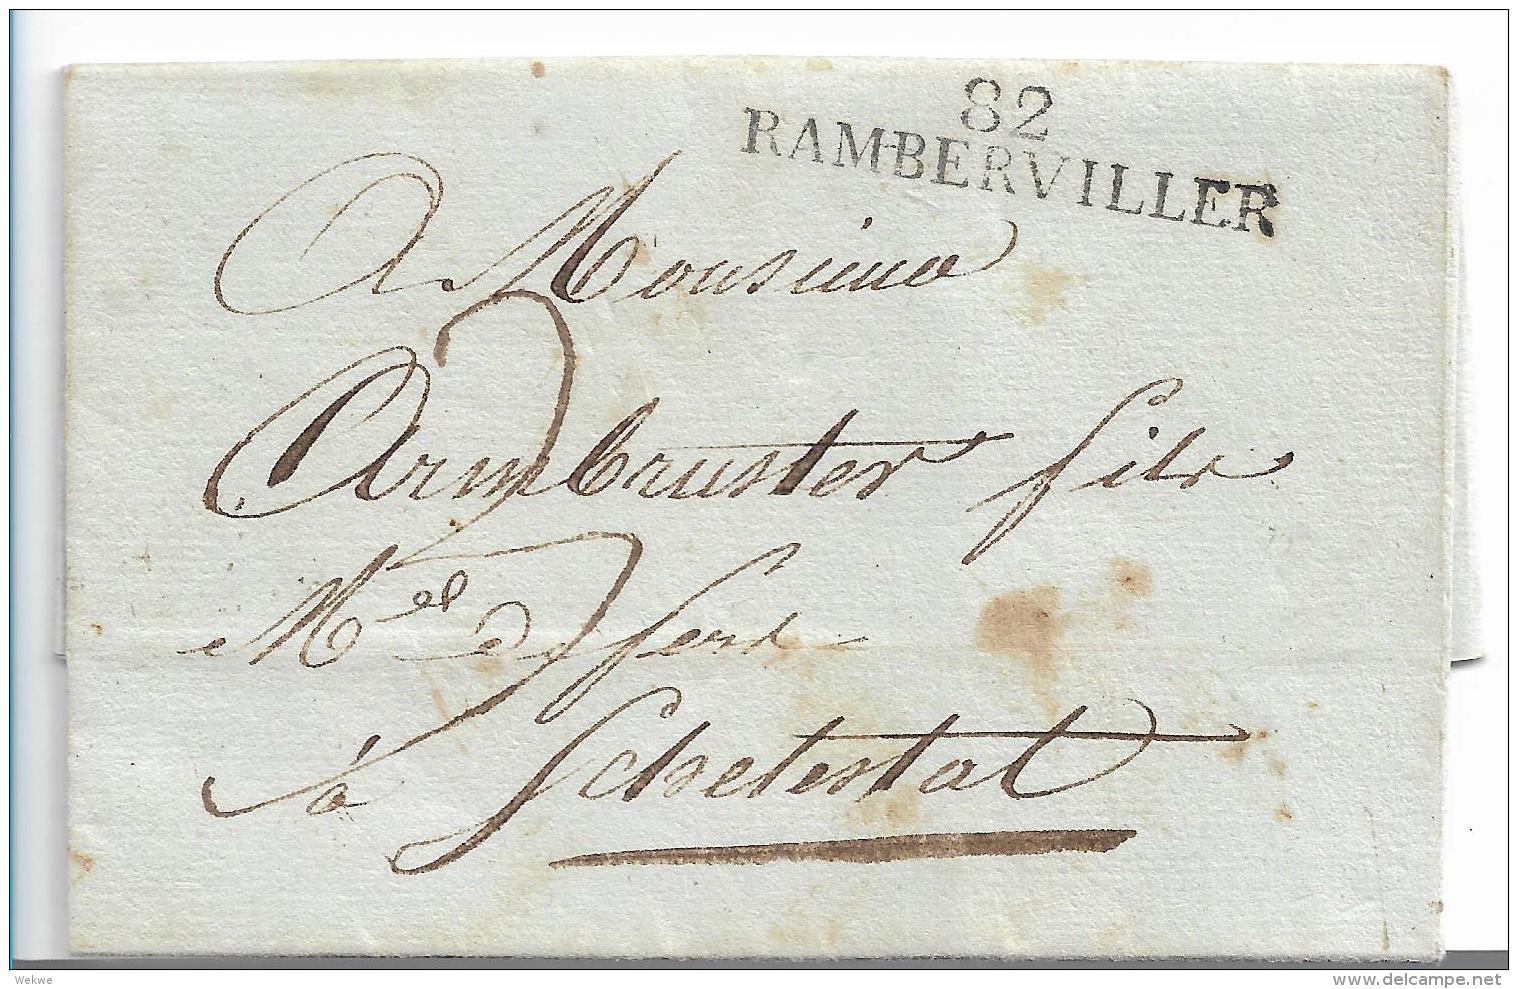 82
RAMBERVILLER
A Monsieur
Armbruster fils
M^d de fer
à Schelestat
Wekwe
delcampe.net